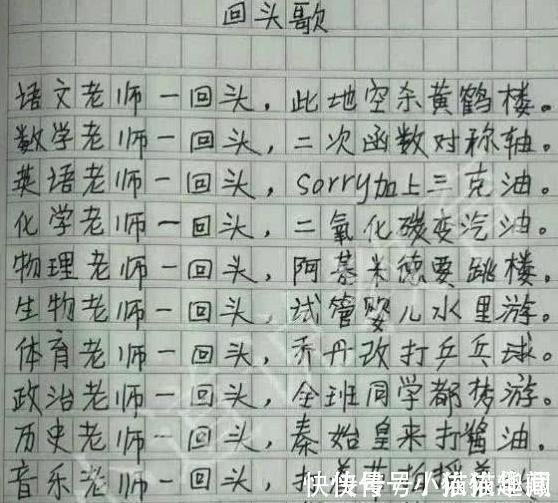 回头歌
语文老师一回头，此地空余黄鹤楼。
数学老师一回头，二次函数对称轴。
英语老师一回头，sorry加上三克油。
化学老师一回头，二氧化碳变汽油。
物理老师一回头，阿基米德要跳楼。
生物老师一回头，试管婴儿水里游。
体育老师一回头，乔丹改打乒乓球。
政治老师一回头，全班同学都梦游。
历史老师一回头，秦始皇来打酱油。
音乐老师一回头，
快传号/猫猫趣闻